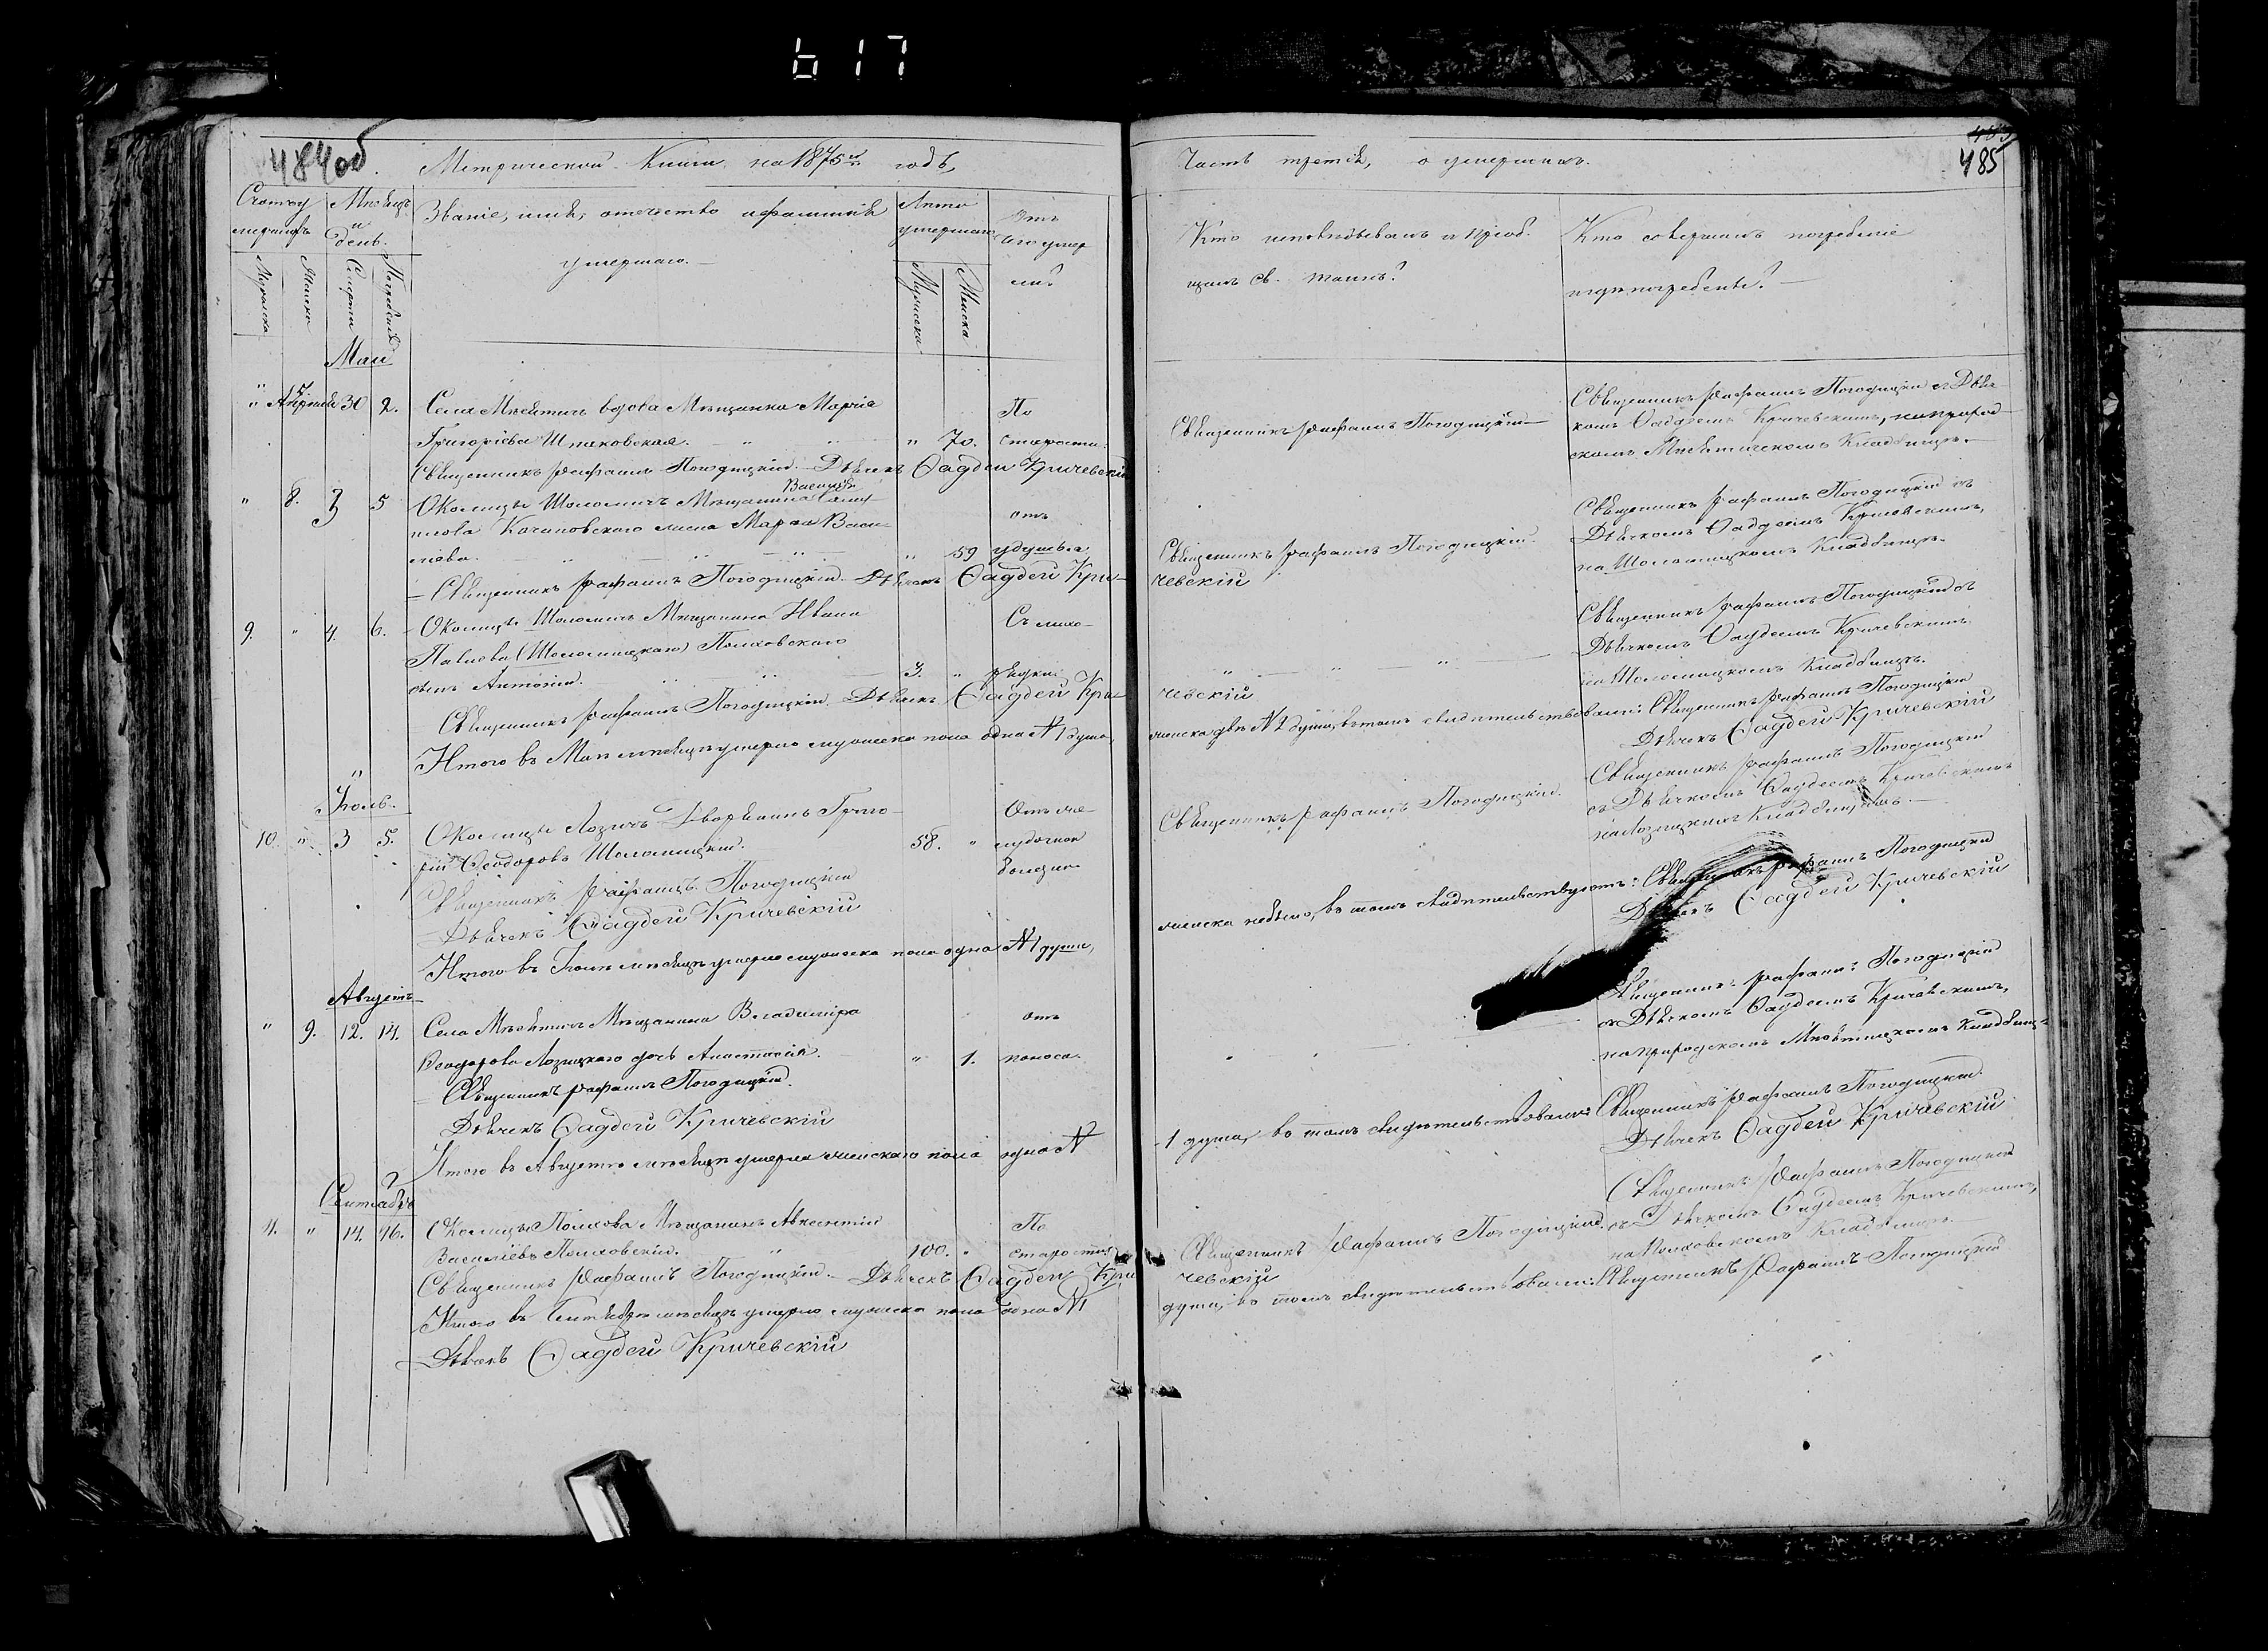 617
484об
Метрической Книги на 1875й годъ
Счетъ умершихъ
Мѣсяцъ и день.
Званіе, имя, отчество и фамилія умершаго.
Лѣта умершаго
Отъ чего умеръ
Мужеска
Женска
Смерти
Погребенія
Мужеска
Женска
Май
" 7 Апрѣля 30 2. Села Мнятичъ вдова Мѣщанка Марія По
Григоріева Шпаковская. " 70. старости.
Священникъ Рафаилъ Погодицкій. Дьячекъ Фаддей Кричевскій
" 8. 3 5 Околицы Шоломичъ Мѣщанина Василія
Качановскаго жена Марѳа Васи- отъ
ліева. " 59 удушья
Священникъ Рафаилъ Погодицкій. Дьячекъ Фаддей Кри-
9. " 4. 6. Околицы Шоломичъ Мѣщанина Ивана Съ лихо-
Павлова (Шоломицкаго) Полховскаго
сынъ Антоній. 3. " радки
Священникъ Рафаилъ Погодицкій. Дьячекъ Фаддей Кри-
Итого въ Маѣ мѣсяцѣ умерло мужеска пола одна №1 душа,
Іюль.
10. " 3 5. Околицы Лозичъ Дворянинъ Григо- Отъ же-
рій Ѳеодоровъ Шоломицкій. 58. " лудочной
Священникъ Рафаилъ Погодицкій болезни
Дьячекъ Фаддей Кричевскій
Итого въ Іюлѣ мѣсяцѣ умерло мужеска пола одна №1 душа,
Августъ
" 9. 12. 14. Села Мнятичъ Мѣщанина Владиміра отъ
Ѳеодорова Лозицкаго дочь Анастасія. " 1. поноса.
Священникъ Рафаилъ Погодицкій.
Дьячекъ Фаддей Кричевскій
Итого въ Августѣ мѣсяцѣ умерла женскаго пола одна №
Сентябрь
" 14. 16. Околицы Полхова Мѣщанинъ Авксентій По
Василіевъ Полховскій. 100. " старости
Священникъ Рафаилъ Погодицкій. Дьячекъ Фаддей Кри
Итого въ Сентябрѣ мѣсяцѣ умерло мужеска пола одна №1
Дьячекъ Фаддей Кричевскій
485
Часть третія, о умершихъ.
Кто исповѣдывалъ и пріоб-
щалъ св. таинъ?
Кто совершалъ погребеніе
и гдѣ погребены?
Священникъ Рафаилъ Погодицкій
Священникъ Рафаилъ Погодицкій съ Дьяч-
комъ Фаддеемъ Кричевскимъ, на приход-
скомъ Кладбищѣ.
Священникъ Рафаилъ Погодицкій.
чевскій
Священникъ Рафаилъ Погодицкій съ
Дьячкомъ Фаддеемъ Кричевскимъ,
на Шоломицкомъ Кладбищѣ.
чевскій
Священникъ Рафаилъ Погодицкій съ
Дьячкомъ Фаддеемъ Кричевскимъ
на Шоломицкомъ Кладбищѣ.
женска двѣ №2 души, въ томъ свидѣтельствовали: Священникъ Рафаилъ Погодицкій
Дьячекъ Фаддей Кричевскій
Священникъ Рафаилъ Погодицкій.
Священникъ Рафаилъ Погодицкій
съ Дьячкомъ Фаддеемъ Кричевскимъ
на Лозицкомъ Кладбищѣ.
женска небыло, въ томъ свидѣтельствуютъ: Священникъ Рафаилъ Погодицкій
Дьячекъ Фаддей Кричевскій
Священникъ Рафаилъ Погодицкій
съ Дьячкомъ Фаддеемъ Кричевскимъ,
на приходскомъ Кладбищѣ
1 душа, въ томъ свидѣтельствовали: Священникъ Рафаилъ Погодицкій.
Дьячекъ Фаддей Кричевскій
Священникъ Рафаилъ Погодицкій.
Священникъ Рафаилъ Погодицкій
съ Дьячкомъ Фаддеемъ Кричевскимъ,
на Полховскомъ Кладбищѣ.
чевскій
душа, въ томъ свидѣтельствовали: Священникъ Рафаилъ Погодицкій